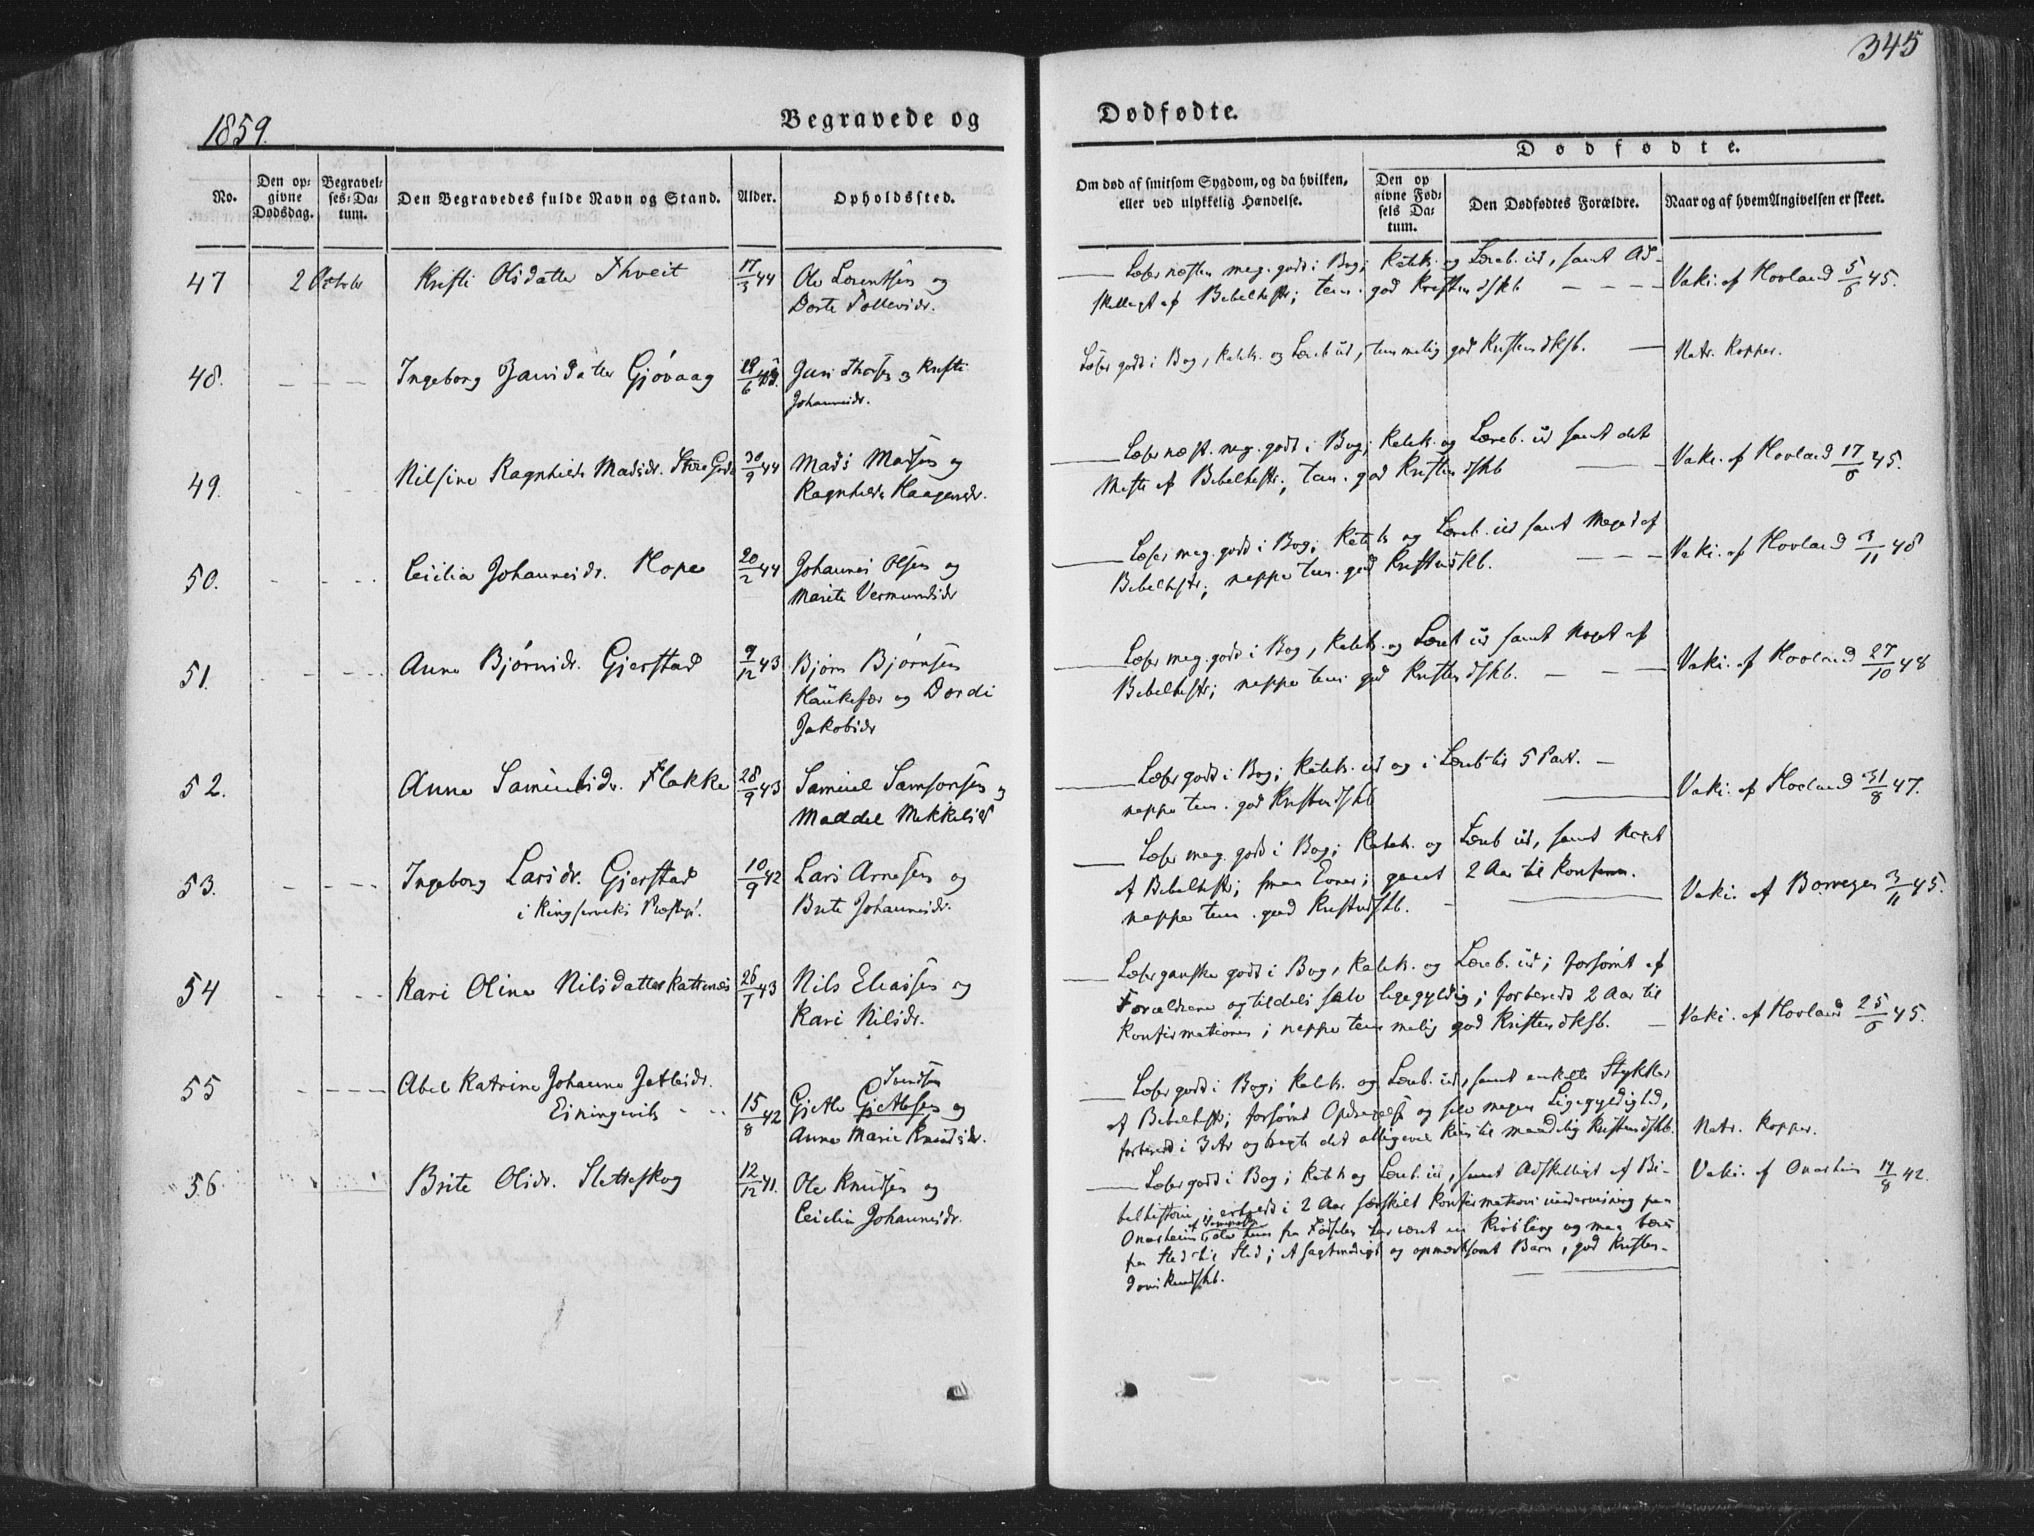 345
1859.
Begravede og Dødfødte.
Dødfødte.
No.
Den op-
givne
Dødsdag.
Begravel-
ses-Da-
tum.
Den Begravedes fulde Navn og Stand.
Alder.
Opholdssted.
Om død af smitsom Sygdom, og da hvilken,
eller ved ulykkelig Hændelse.
Den op
givne Fød-
sels Da-
tum.
Den Dødfødtes Forældre.
Naar og af hvem Angivelsen er skeet.
47 2 October Kristi Olsdatter Thveit 17/3 44 Ole Lorentsen og
Dorte Tollevsdr.
Læser næsten meg. godt i Bog; Katek. og Læreb. ud, samt Ad-
skilligt af Bibelhistr; tem. god Kristendskb
Vaki. af Hovland 5/6 45.
48. Ingeborg Gjøvaag
Johannesdr.
Læser godt i Bog, Katek. og Læreb ud, temmelig god Kristendskb.
Natr. Kopper.
49. Nilsine Ragnhilda Madsdr. 30/9 44 Mads Madsen og
Ragnhilda Haagensdr.
Læser næst. meg. godt i Bog; Katek. og Læreb. ud samt det
Meste af Bibelhistr.; tem. god Kristendskb
Vaki. af Hovland 17/6 45.
50. Cecilia Johannesdr. Hope 20/2 44 Johannes Olsen og
Marite Vermundsdr
Læser meg. godt i Bog; Katek og Læreb. ud samt Noget af
Bibelhistr; neppe tem. god Kristendskb.
Vaki. af Hovland 3/11 48
51. Anna Bjørnsdr. Gjerstad 9/12 43 Bjørn Bjørnsen
Haukefær og Dordi
Jakobsdr
Læser meg. godt i Bog, Katek. og Læreb ud samt Noget af
Bibelhistr; neppe tem god Kristendskb.
Vaki. af Hovland 27/10 48
52. Anna Samuelsdr. Flakke 28/9 43 Samuel Samsonsen og
Maddel Mikkelsdr
Læser godt i Bog; Katek. ud og i Læreb til 5 Part.
neppe tem. god Kristendskb
Vaki. af Hovland 31/8 47.
53. Ingeborg Larsdr. Gjerstad 10/9 42 Lars Arnesen og
i Kingserviks Præstegj. Brite Johannesdr.
Læser meg. godt i Bog; Katek. og Læreb ud, samt Noget
af Bibelhistr; smaa Evner; gaaet 2 Aar til Konfirm.
neppe tem. god Kristendskb.
Vaki. af Borregen 3/11 45.
54 Kari Olina Nilsdatter Kattenes 43 Nils Eliassen og
Kari Nilsdr.
Læser ganske godt i Bog, Katek. og Læreb. ud; forsømt af
Forældrene og tildels selv ligegyldig; forberedt 2 Aar til
Konfirmationen; neppe temmelig god Kristendksb.
Vaki. af Hovland 25/6 45.
55 Abel Katrine Johanna Jetlesdr.
Einingevik 15/8 42 Gjetle Gjetlesen og
Anna Marie Knudsdr.
Læser godt i Bog; Katek. og Læreb. ud, samt enkelte Stykker
af Bibelhistr; forsømt Opdragelse og selv megen Ligegyldighed,
forberedt i 3 Ar og det alligevel kun til maadelig Kristendskb.
Natr. Kopper.
56 Brite Olsdr. Sletteskog 12/12 41. Ole Knudsen og
Cecilia Johannesdr.
Læser godt i Bog; Katek og Læreb. ud, samt Adskilligt af Bi-
belhistorie; i 2 Aar særskilt Konfirmationsundervisning paa
Onarheim; hun fra Fødselen har været en Krøbling og maa bæres
fra Sted til Sted; et sagtmodigt og opmærksomt Barn, god Kristen-
domskundskb.
Vaki. af Onarheim 42.